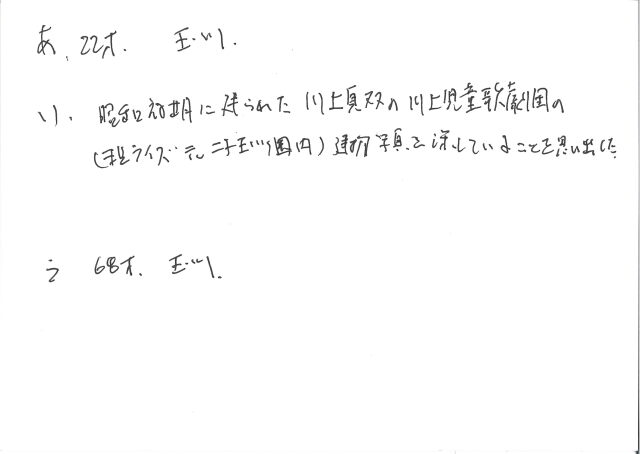 あ、22才. 玉川.
い). 昭和初期に建られた川上貞奴の川上児童歌劇団の
(現ライズ 二子玉川園内) 建物写真を探していることを思い出した
う 68才. 玉川.